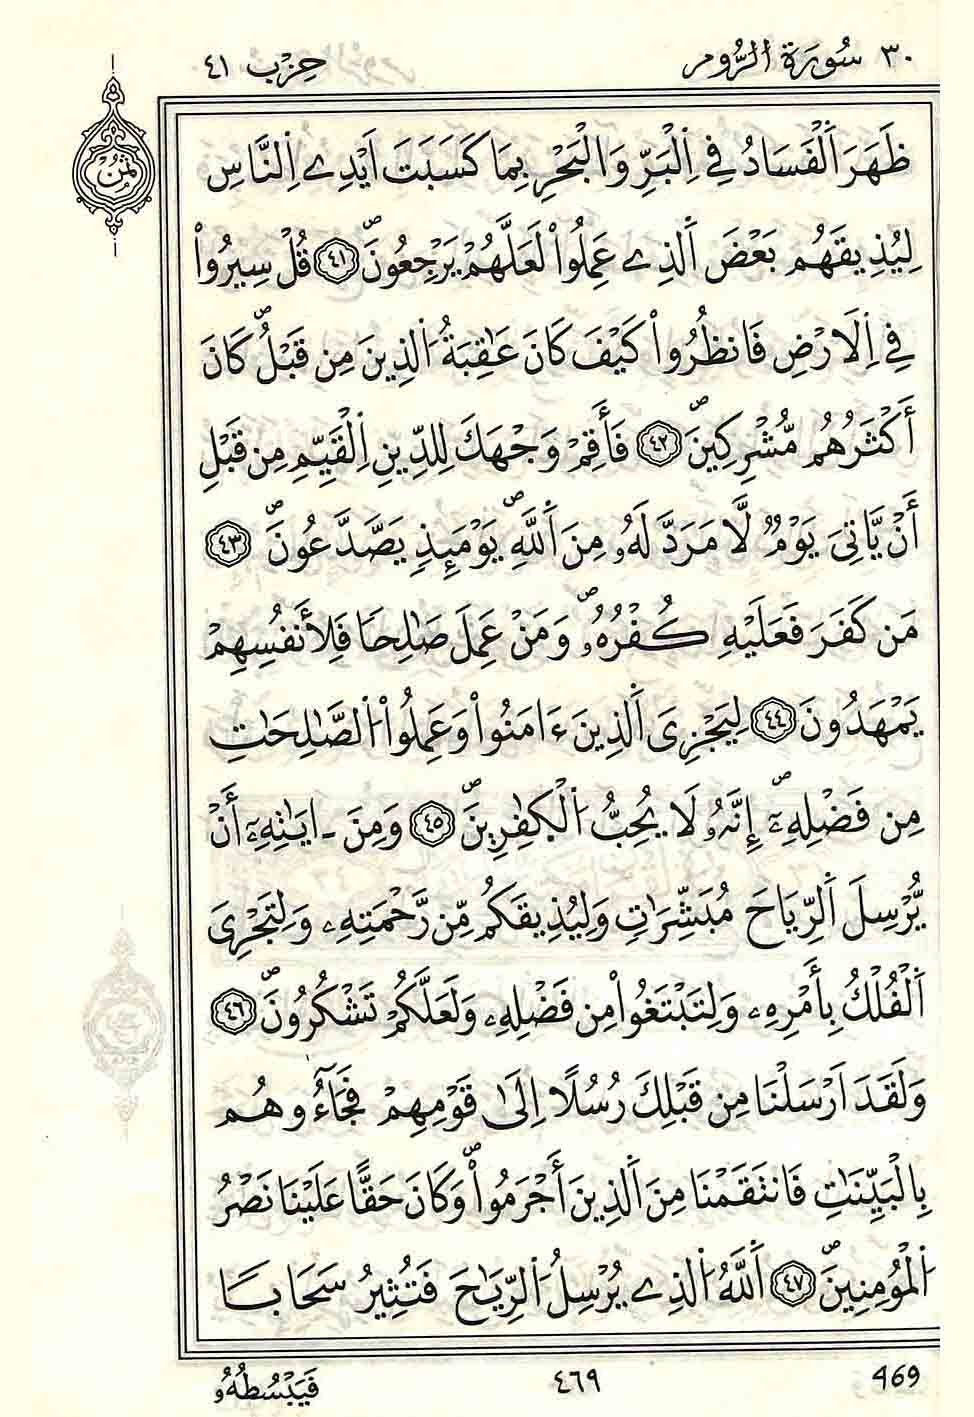 ٣٠ سُورَةُ الرُّومِ حِزْب ٤١
ثُمُن
ظَهَرَ اَ۬لْفَسَادُ فِے اِ۬لْبَرِّ وَالْبَحْرِ بِمَا كَسَبَتَ اَيْدِے اِ۬لنَّاسِ
لِيُذِيقَهُم بَعْضَ اَ۬لذِے عَمِلُواْ لَعَلَّهُمْ يَرْجِعُونَۖ ٤١ قُلْ سِيرُواْ
فِے اِ۬لَارْضِ فَانظُرُواْ كَيْفَ كَانَ عَٰقِبَةُ اُ۬لذِينَ مِن قَبْلُۖ كَانَ
أَكْثَرُهُم مُّشْرِكِينَۖ ٤٢ فَأَقِمْ وَجْهَكَ لِلدِّينِ اِ۬لْقَيِّمِ مِن قَبْلِ
أَنْ يَّاتِيَ يَوْمٞ لَّا مَرَدَّ لَهُۥ مِنَ اَ۬للَّهِۖ يَوْمَئِذٖ يَصَّدَّعُونَۖ ٤٣
مَن كَفَرَ فَعَلَيْهِ كُفْرُهُۥۖ وَمَنْ عَمِلَ صَٰلِحاٗ فَلِأَنفُسِهِمْ
يَمْهَدُونَ ٤٤ لِيَجْزِيَ اَ۬لذِينَ ءَامَنُواْ وَعَمِلُواْ اُ۬لصَّٰلِحَٰتِ
مِن فَضْلِهِۦٓۖ إِنَّهُۥ لَا يُحِبُّ اُ۬لْكٰفِرِينَۖ ٤٥ وَمِنَ ـ ايَٰتِهِۦٓ أَنْ
يُّرْسِلَ اَ۬لرِّيَاحَ مُبَشِّرَٰتٖ وَلِيُذِيقَكُم مِّن رَّحْمَتِهِۦ وَلِتَجْرِيَ
اَ۬لْفُلْكُ بِأَمْرِهِۦ وَلِتَبْتَغُواْ مِن فَضْلِهِۦ وَلَعَلَّكُمْ تَشْكُرُونَۖ ٤٦
وَلَقَدَ اَرْسَلْنَا مِن قَبْلِكَ رُسُلاً اِلَىٰ قَوْمِهِمْ فَجَآءُوهُم
بِالْبَيِّنَٰتِ فَانتَقَمْنَا مِنَ اَ۬لذِينَ أَجْرَمُواْۖ وَكَانَ حَقّاً عَلَيْنَا نَصْرُ
اُ۬لْمُومِنِينَۖ ٤٧ اَ۬للَّهُ اُ۬لذِے يُرْسِلُ اُ۬لرِّيَٰحَ فَتُثِيرُ سَحَاباٗ
فَيَبْسُطُهُۥ ٤٦٩ 469